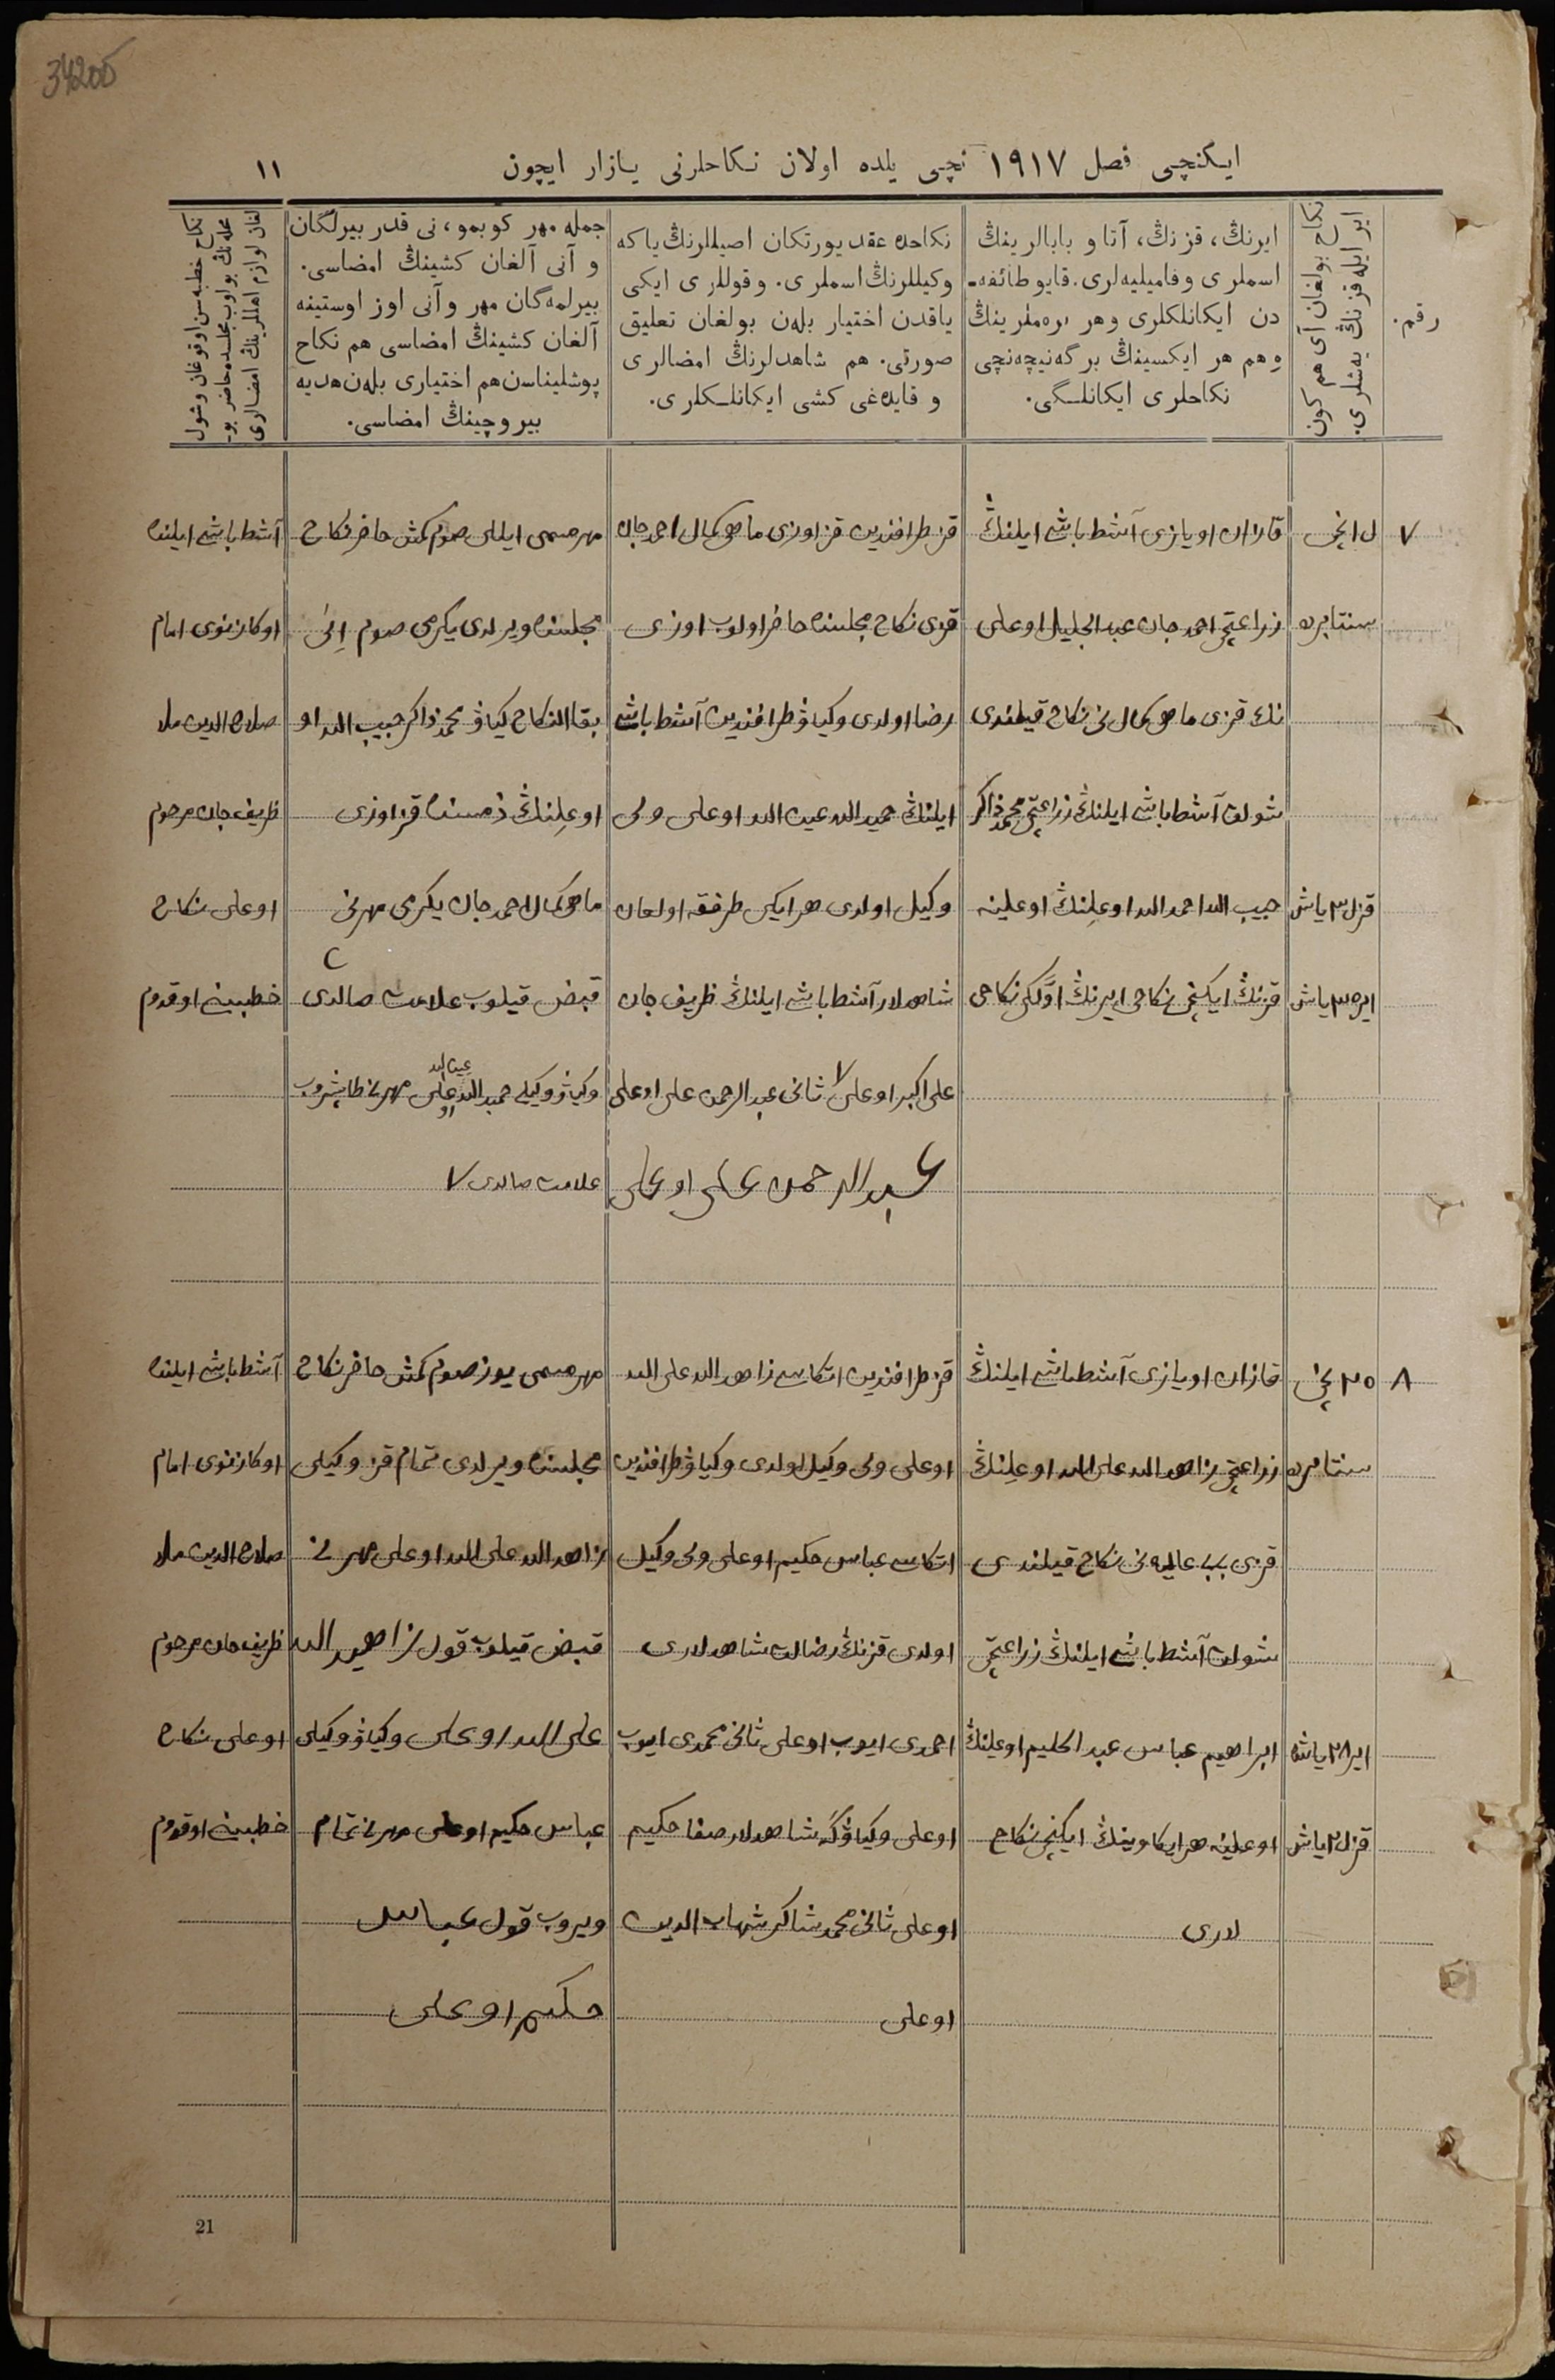 34205
ایکنچی فصل ۱۹۱۷ نچی یلده اولان نکاحلرنی یازار ایچون
۱۱
رقم.
نکاح بولغان آی هم کون
ایر ایله قزنڭ یەشلری.
ایرنڭ، قزنڭ، آتا و بابالرینڭ
اسملری و فامیلیه‌لری. قایو طائفه‌-
دن ایکانلکلری وهر
وهم هر ایکسینڭ برگه نیچه‌نچی
نکاحلری ایکانلـگی.
نکاحده عقد یورتکان اصیللرنڭ یا که
وکیللرنڭ اسملری. و قوللری ایکی
یاقدن اختیار بله‌ن بولغان تعلیق
صورتی. هم شاهدلرنڭ امضالری
و قایده‌غی کشی ایکانلـکلری.
جمله مهر کوبمو، نی قدر بیرلگان
و آنی آلغان کشینڭ امضاسی.
بیرلمه‌گان مهر و آنی اوز اوستینه
آلغان کشینڭ امضاسی هم نکاح
پوشلیناسن هم اختیاری بله‌ن هدیه
بیروچینڭ امضاسی.
نکاح خطبه‌سن اوقوغان وشول
محله‌نڭ بو اوپ مجلسده حاضر بو-
لغان لوازم اهللرینڭ امضالری
۷
سنتابرده
قزل ۳ یاش
ایر ۳۵ یاش
قازان اویازی آشطباش ایلنڭ
زراعتچی احمدجان عبدالجلیل اوغلی
نڭ قزی ماهی کمال نی نکاح قیلندی
شولوق آشطباش ایلنڭ زراعتچی محمدذاکر
حبیب الله احمدالله اوغلنڭ اوغلینه
قزنڭ ایکنچی نکاحی ایرنڭ اوّلکی نکاحی
قز طرافندین قز اوزی ماهی کمال احمدجان
قزی نکاح مجلسنده حاضر اولوب اوزی
رضا اولدی و کیاو طرافندین آشطباش
ایلنڭ حمیدالله عیدالله اوغلی ولی
وکیل اولدی هر ایکی طرفقه اولغان
شاهدلار آشطباش ایلنڭ ظریف جان
علی اکبر اوغلی ۷ ثانی عبدالرحمن علی اوغلی
عبدالرحمن علی اوغلی
مهر مسمی ایللی صوم کمش حاضر نکاح
مجلسنده ویرلدی یکرمی صوم
بقاالنکاح کیاو محمدذاکر حبیب الله او
اوغلنڭ ذمسنده قز اوزی
ماهی کمال احمدجان یکرمی مهرنی
قبض قیلوب علامت صالدی
وکیاو وکیلی حمیدالله عیدالله اوغلی مهرنی طابشروب
علامت صالدی ۷
آشطباش ایلنده
اوکازنوی امام
صلاح الدین ملا
ظریف جان مرحوم
اوغلی نکاح
خطبه‌سنی اوقدوم
۸
۲۵ نچی
سنتابرده
ایر ۲۸ یاشده
قزل ۲ یاش
قازان اویازی آشطباش ایلنڭ
زراعتچی زاهدالله علی الله اوغلنڭ
قزی بیبی عالیه نی نکاح قیلندی
شولوق آشطباش ایلنڭ زراعتچی
ابراهیم عباس عبدالحلیم اوغلنڭ
اوغلینه هر ایکاوینڭ ایکنچی نکاح
لاری
قز طرافندین اتکاسی زاهدالله علی الله
اوغلی ولی وکیل اولدی وکیاو طرافندین
اتکاسی عباس حکیم اوغلی ولی وکیل
اولدی قزنڭ رضالق شاهدلاری
احمدی ایوب اوغلی ثانی محمدی ایوب
اوغلی وکیاوگه شاهدلار صفا حکیم
اوغلی ثانی محمدشاکر شهاب الدین
اوغلی
مهر مسمی یوز صوم کمش حاضر نکاح
مجلسنده ویرلدی تمام قز وکیلی
زاهدالله علی الله اوغلی مهرنی
قبض قیلوب قول زاهیدالله
علی الله اوغلی وکیاو وکیلی
عباس حکیم اوغلی مهرنی تمام
ویروب قول عباس
حکیم اوغلی
آشطباش ایلنده
اوکازنوی امام
صلاح الدین ملا
ظریف جان مرحوم
اوغلی نکاح
خطبه‌سنی اوقدوم
21